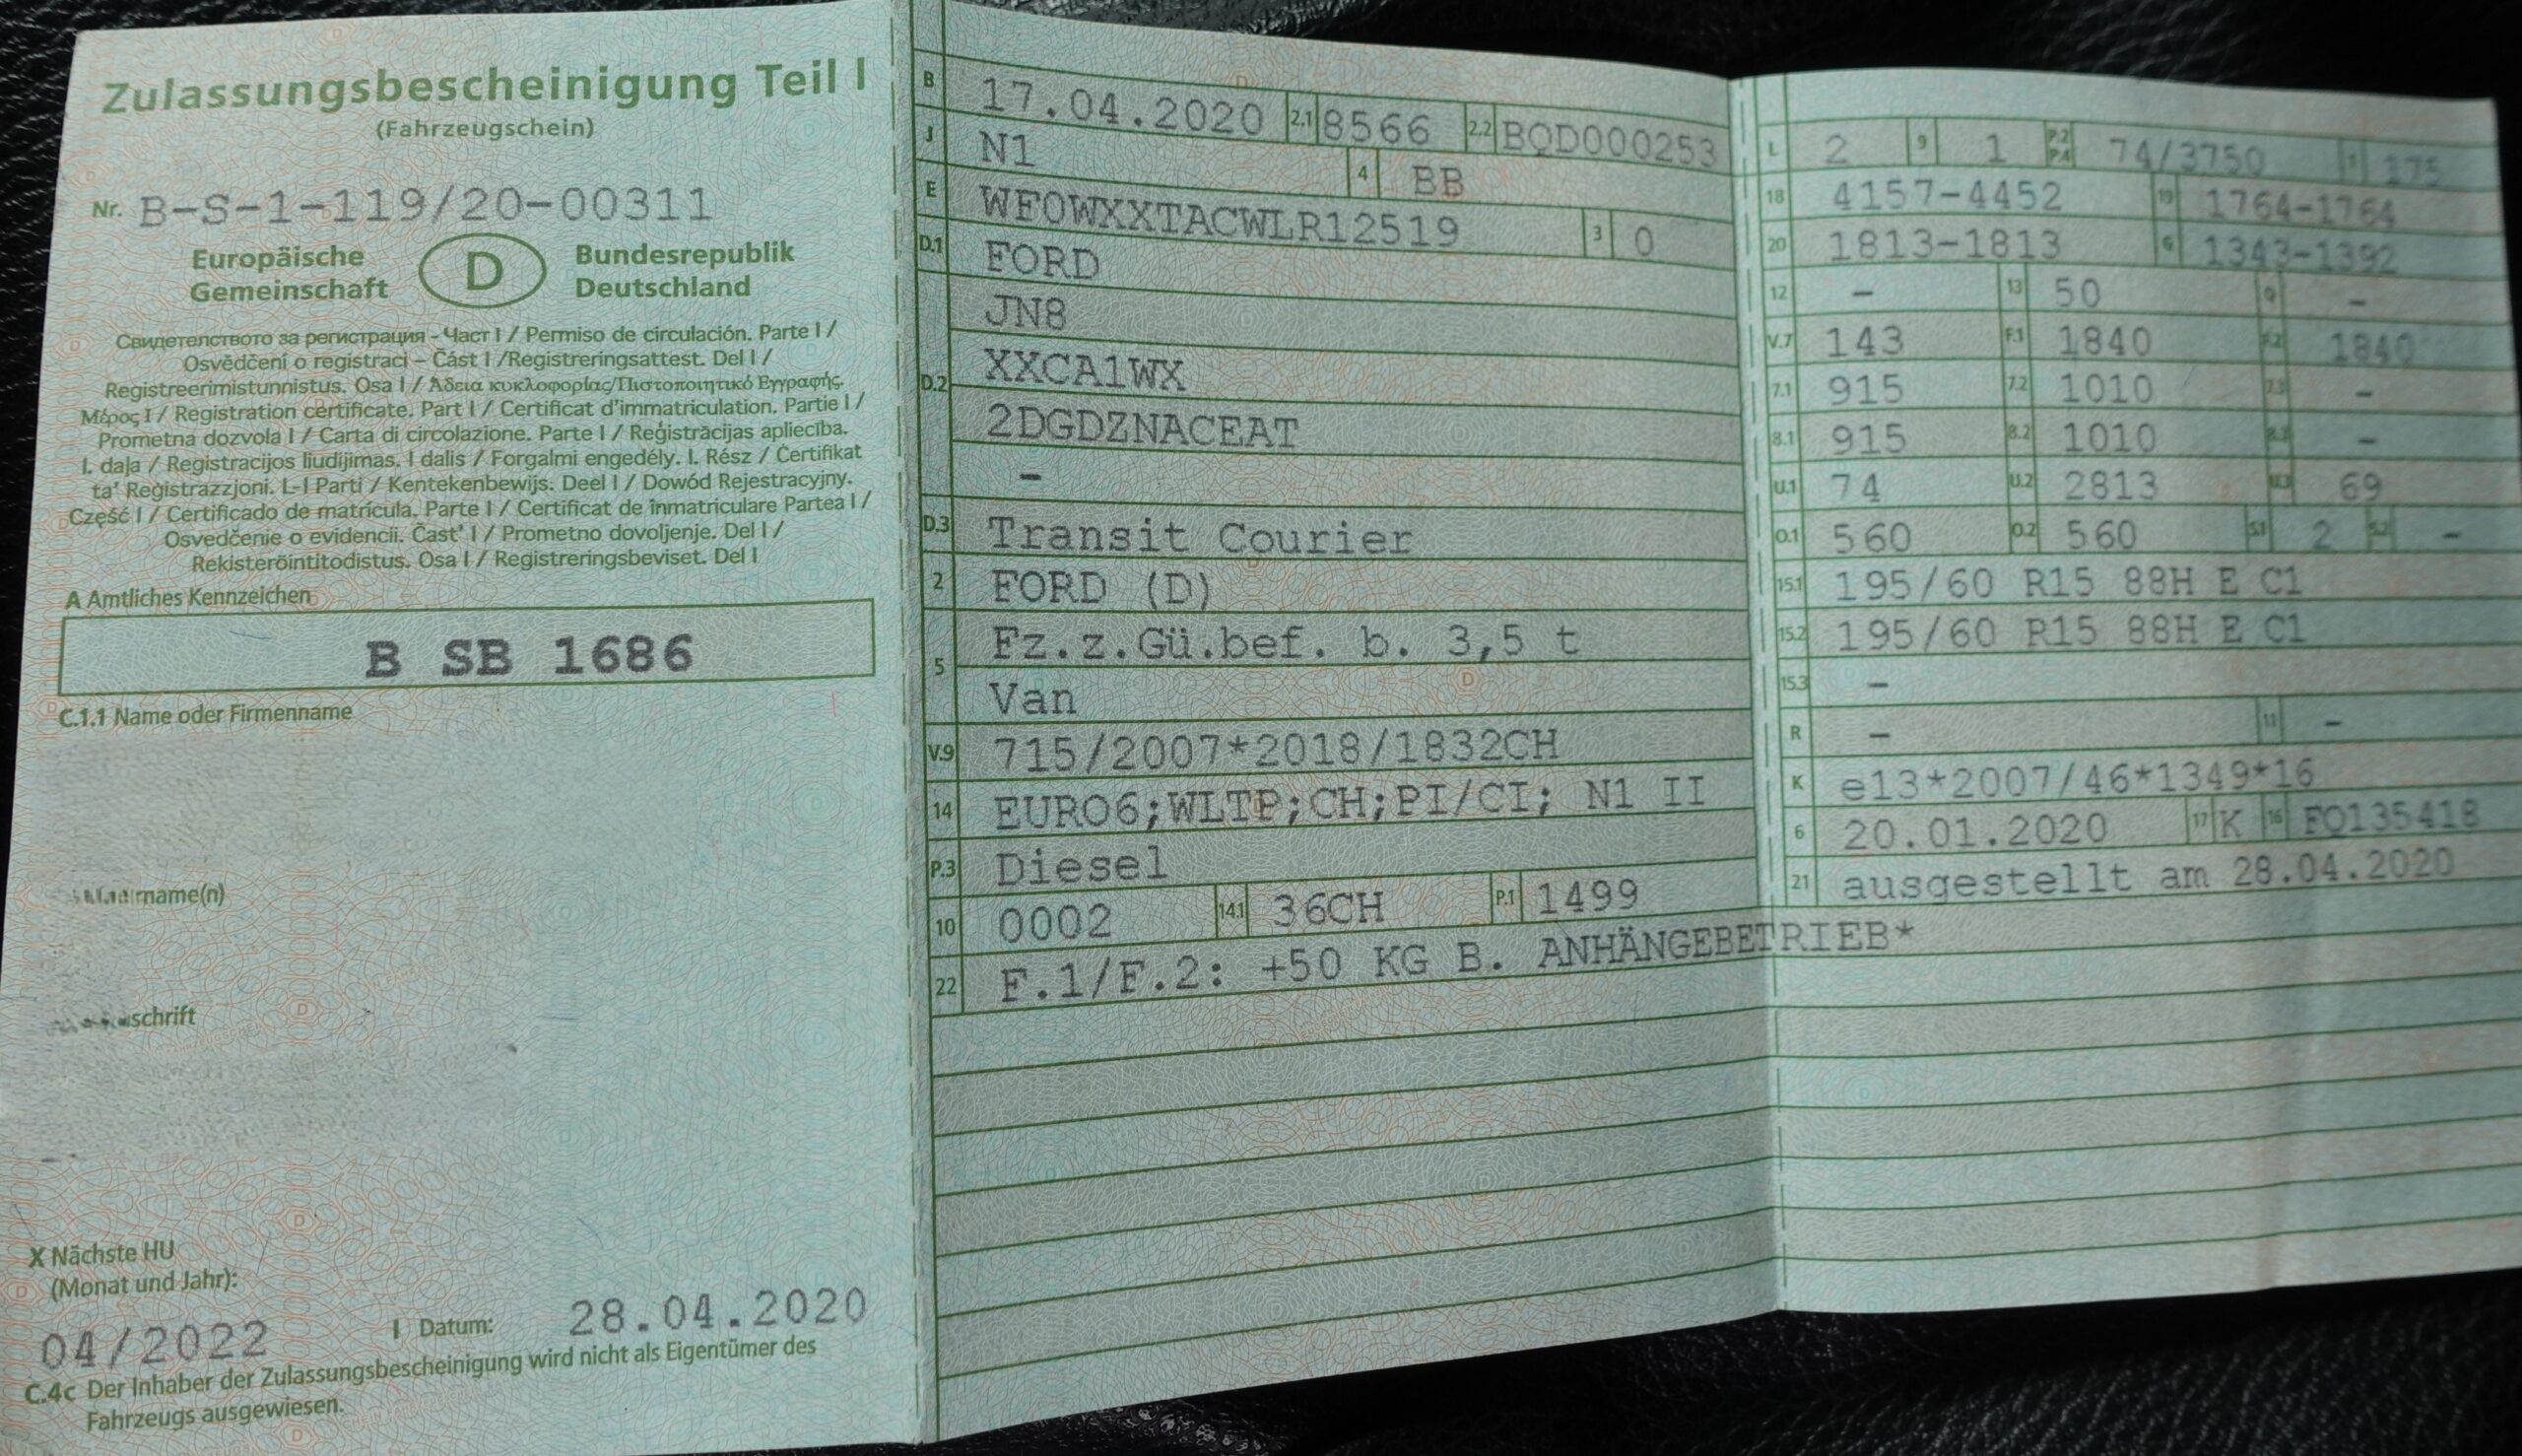 Zulassungsbescheinigung Teil I
(Fahrzeugschein)
Nr. B-S-1-119/20-00311
Europäische Gemeinschaft D Bundesrepublik Deutschland
Свидетелството за регистрация - Част I / Permiso de circulación. Parte I /
Osvědčení o registraci – Část I /Registreringsattest. Del I /
Registreerimistunnistus. Osa I / Άδεια κυκλοφορίας/Πιστοποιητικό Εγγραφής.
Μέρος I / Registration certificate. Part I / Certificat d'immatriculation. Partie I /
Prometna dozvola I / Carta di circolazione. Parte I / Reģistrācijas apliecība.
I. daļa / Registracijos liudijimas. I dalis / Forgalmi engedély. I. Rész / Ċertifikat
ta' Reġistrazzjoni. L-I Parti / Kentekenbewijs. Deel I / Dowód Rejestracyjny.
Część I / Certificado de matrícula. Parte I / Certificat de înmatriculare Partea I /
Osvedčenie o evidencii. Časť I / Prometno dovoljenje. Del I /
Rekisteröintitodistus. Osa I / Registreringsbeviset. Del I
A Amtliches Kennzeichen
B SB 1686
C.1.1 Name oder Firmenname
name(n)
schrift
X Nächste HU
(Monat und Jahr):
04/2022 I Datum: 28.04.2020
C.4c Der Inhaber der Zulassungsbescheinigung wird nicht als Eigentümer des
Fahrzeugs ausgewiesen.
B 17.04.2020 2.1 8566 2.2 BQD000253
J N1 4 BB
E WF0WXXTACWLR12519 3 0
D.1 FORD
JN8
D.2 XXCA1WX
2DGDZNACEAT
-
D.3 Transit Courier
2 FORD (D)
5 Fz.z.Gü.bef. b. 3,5 t
Van
V.9 715/2007*2018/1832CH
14 EURO6;WLTP;CH;PI/CI; N1 II
P.3 Diesel
10 0002 14.1 36CH P.1 1499
22 F.1/F.2: +50 KG B. ANHÄNGEBETRIEB*
L 2 9 1 P.2 P.4 74/3750 T 175
18 4157-4452 19 1764-1764
20 1813-1813 G 1343-1392
12 - 13 50 Q -
V.7 143 F.1 1840 F.2 1840
7.1 915 7.2 1010 7.3 -
8.1 915 8.2 1010 8.3 -
U.1 74 U.2 2813 U.3 69
O.1 560 O.2 560 S.1 2 S.2 -
15.1 195/60 R15 88H E C1
15.2 195/60 R15 88H E C1
15.3 -
R - 11 -
K e13*2007/46*1349*16
6 20.01.2020 17 K 16 FO135418
21 ausgestellt am 28.04.2020